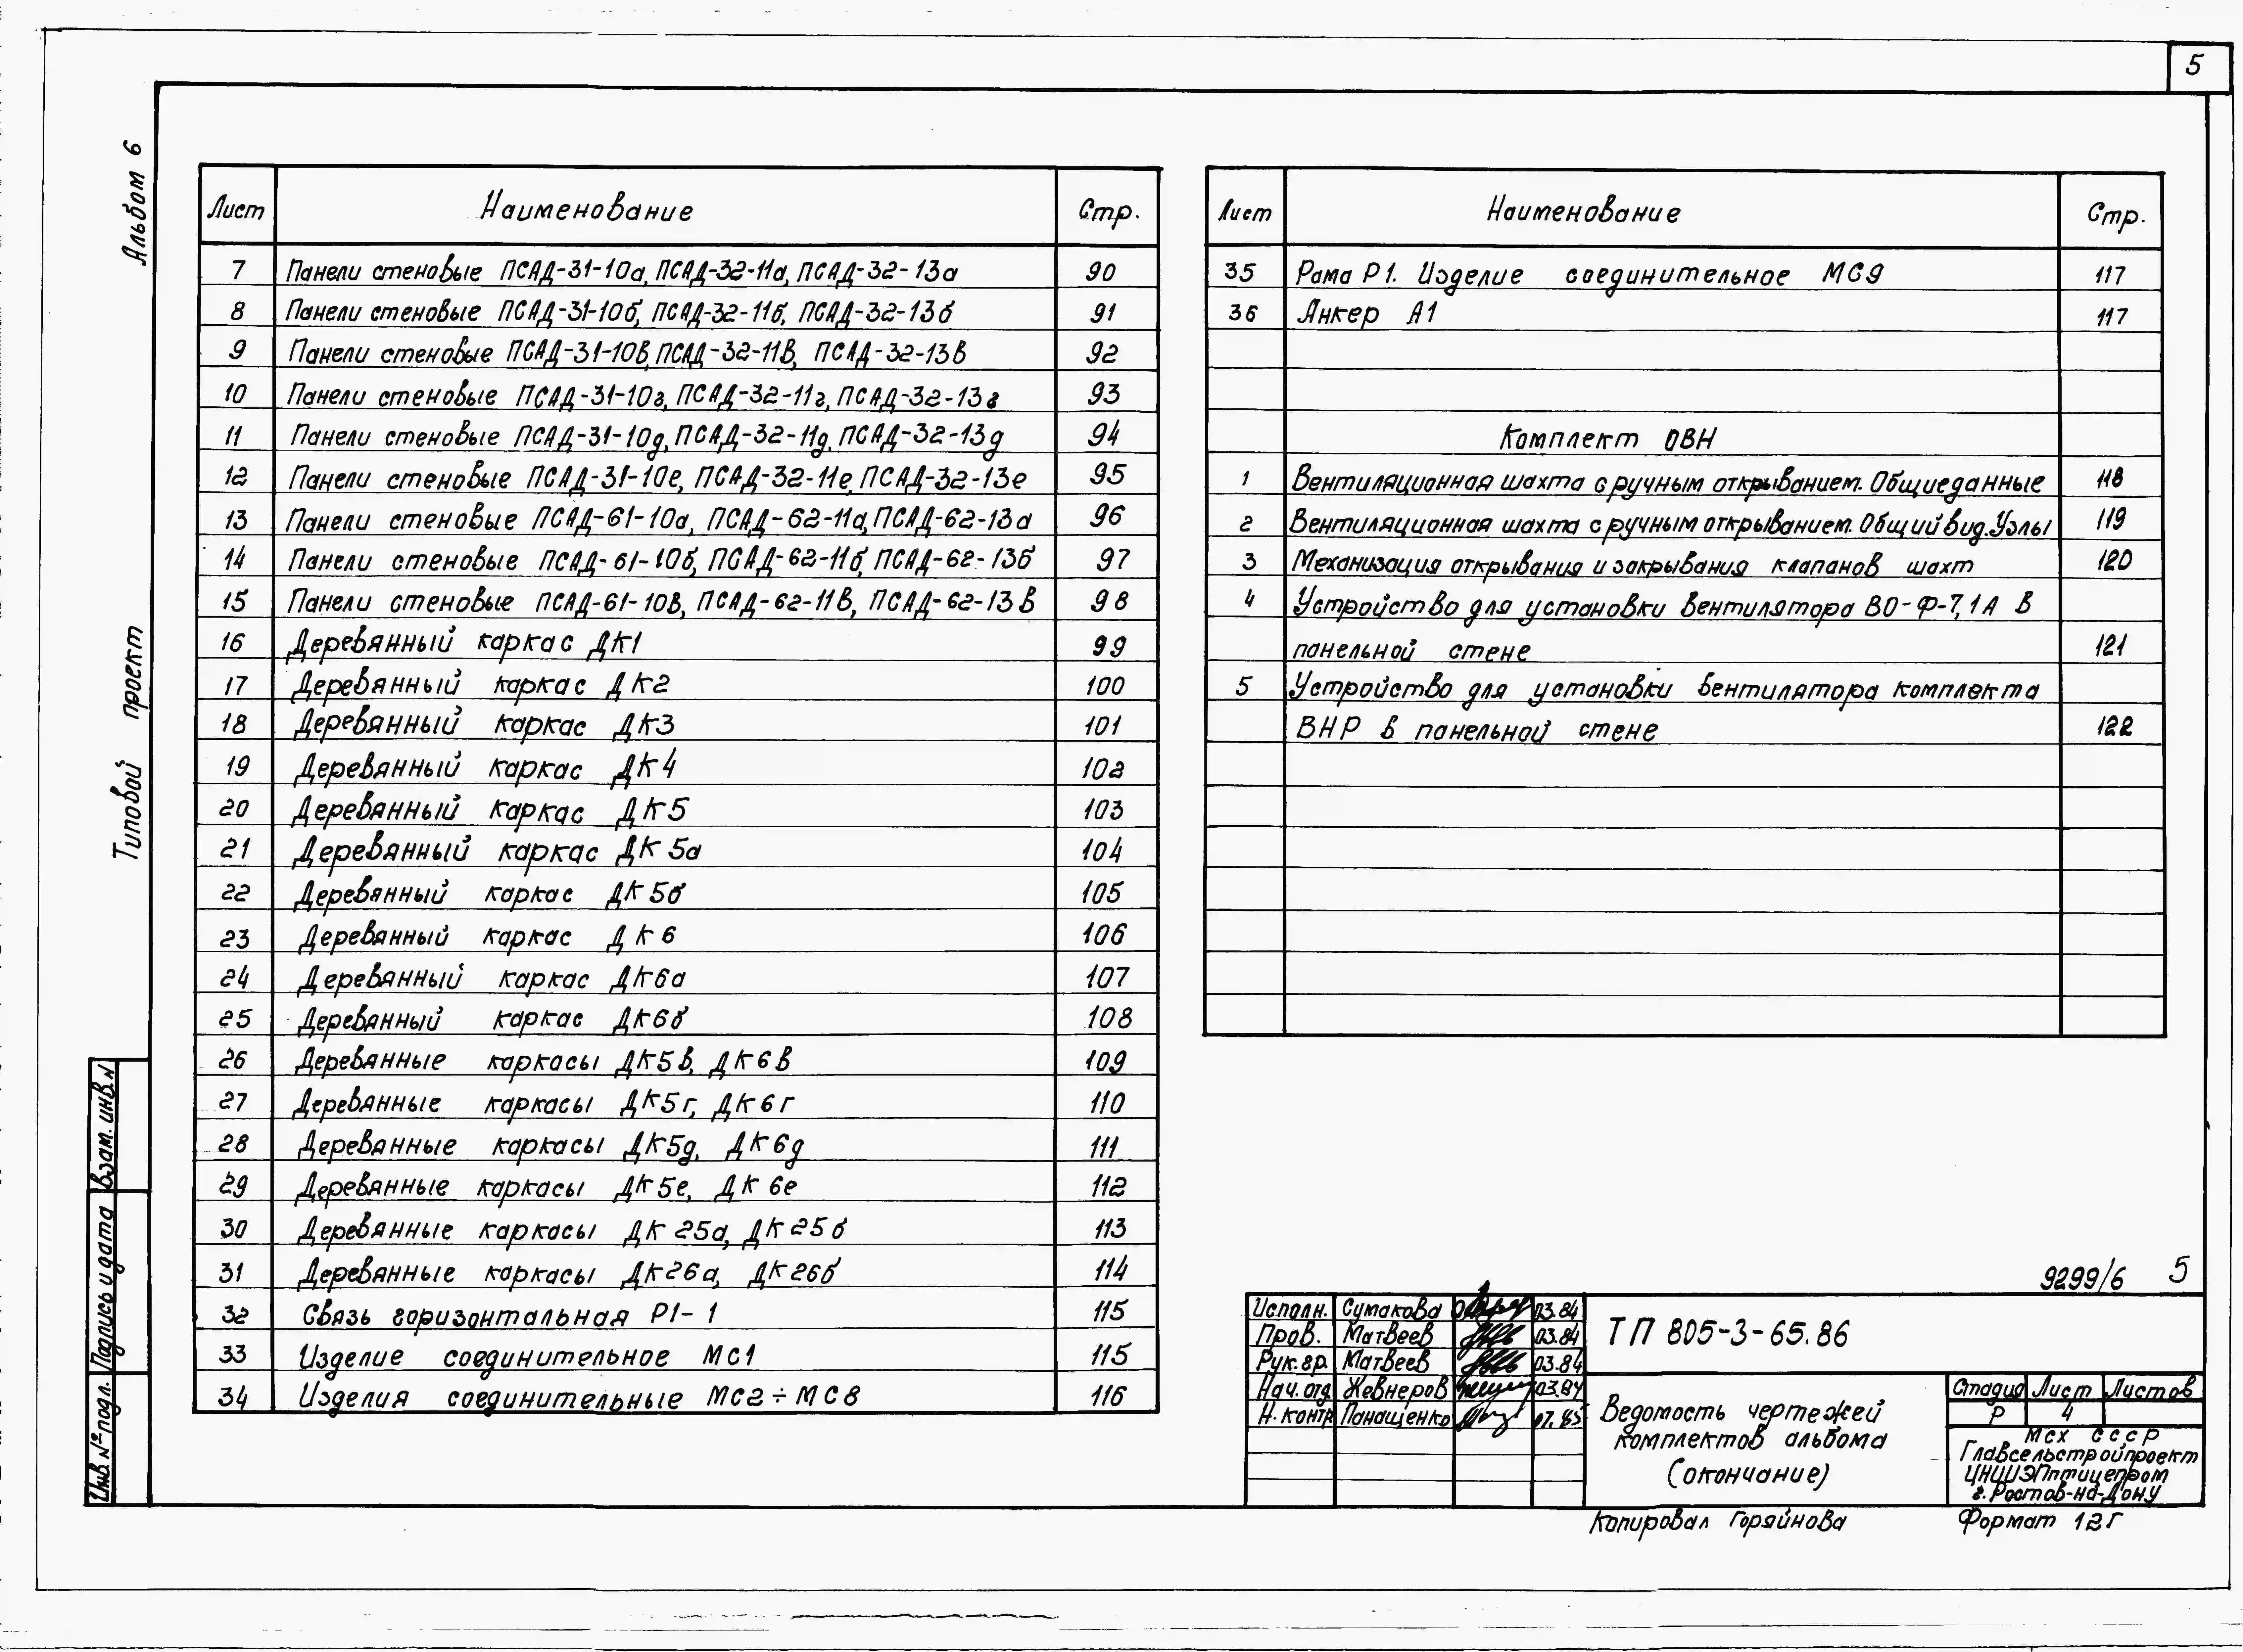 5
Альбом 6
Типовой проект
Лист Наименование Стр.
7 Панели стеновые ПСАД-31-10а, ПСАД-32-11а, ПСАД-32-13а 90
8 Панели стеновые ПСАД-31-10б, ПСАД-32-11б, ПСАД-32-13б 91
9 Панели стеновые ПСАД-31-10в, ПСАД-32-11в, ПСАД-32-13в 92
10 Панели стеновые ПСАД-31-10г, ПСАД-32-11г, ПСАД-32-13г 93
11 Панели стеновые ПСАД-31-10д, ПСАД-32-11д, ПСАД-32-13д 94
12 Панели стеновые ПСАД-31-10е, ПСАД-32-11е, ПСАД-32-13е 95
13 Панели стеновые ПСАД-61-10а, ПСАД-62-11а, ПСАД-62-13а 96
14 Панели стеновые ПСАД-61-10б, ПСАД-62-11б, ПСАД-62-13б 97
15 Панели стеновые ПСАД-61-10в, ПСАД-62-11в, ПСАД-62-13в 98
16 Деревянный каркас ДК1 99
17 Деревянный каркас ДК2 100
18 Деревянный каркас ДК3 101
19 Деревянный каркас ДК4 102
20 Деревянный каркас ДК5 103
21 Деревянный каркас ДК5а 104
22 Деревянный каркас ДК5б 105
23 Деревянный каркас ДК6 106
24 Деревянный каркас ДК6а 107
25 Деревянный каркас ДК6б 108
26 Деревянные каркасы ДК5в, ДК6в 109
27 Деревянные каркасы ДК5г, ДК6г 110
28 Деревянные каркасы ДК5д, ДК6д 111
29 Деревянные каркасы ДК5е, ДК6е 112
30 Деревянные каркасы ДК25а, ДК25б 113
31 Деревянные каркасы ДК26а, ДК26б 114
32 Связь горизонтальная Р1-1 115
33 Изделие соединительное МС1 115
34 Изделия соединительные МС2÷МС8 116
Лист Наименование Стр.
35 Рама Р1. Изделие соединительное МС9 117
36 Анкер А1 117
Комплект ОВН
1 Вентиляционная шахта с ручным открыванием. Общие данные 118
2 Вентиляционная шахта с ручным открыванием. Общий вид. Узлы 119
3 Механизация открывания и закрывания клапанов шахт 120
4 Устройство для установки вентилятора ВО-Ф-7,1А в
панельной стене 121
5 Устройство для установки вентилятора комплекта
ВНР в панельной стене 122
9299/6 5
Исполн. Сумакова 03.84
Пров. Матвеев 03.84
Рук.гр. Матвеев 03.84
Нач. отд. Жевнеров 03.84
Н. контр. Панащенко 07.85
ТП 805-3-65.86
Ведомость чертежей
комплектов альбома
(окончание)
Стадия Лист Листов
Р 4
МСХ СССР
Главсельстройпроект
ЦНИИЭПптицепром
г. Ростов-на-Дону
Копировал Горяйнова Формат 12Г
Взам. инв. N
Подпись и дата
Инв. № подл.